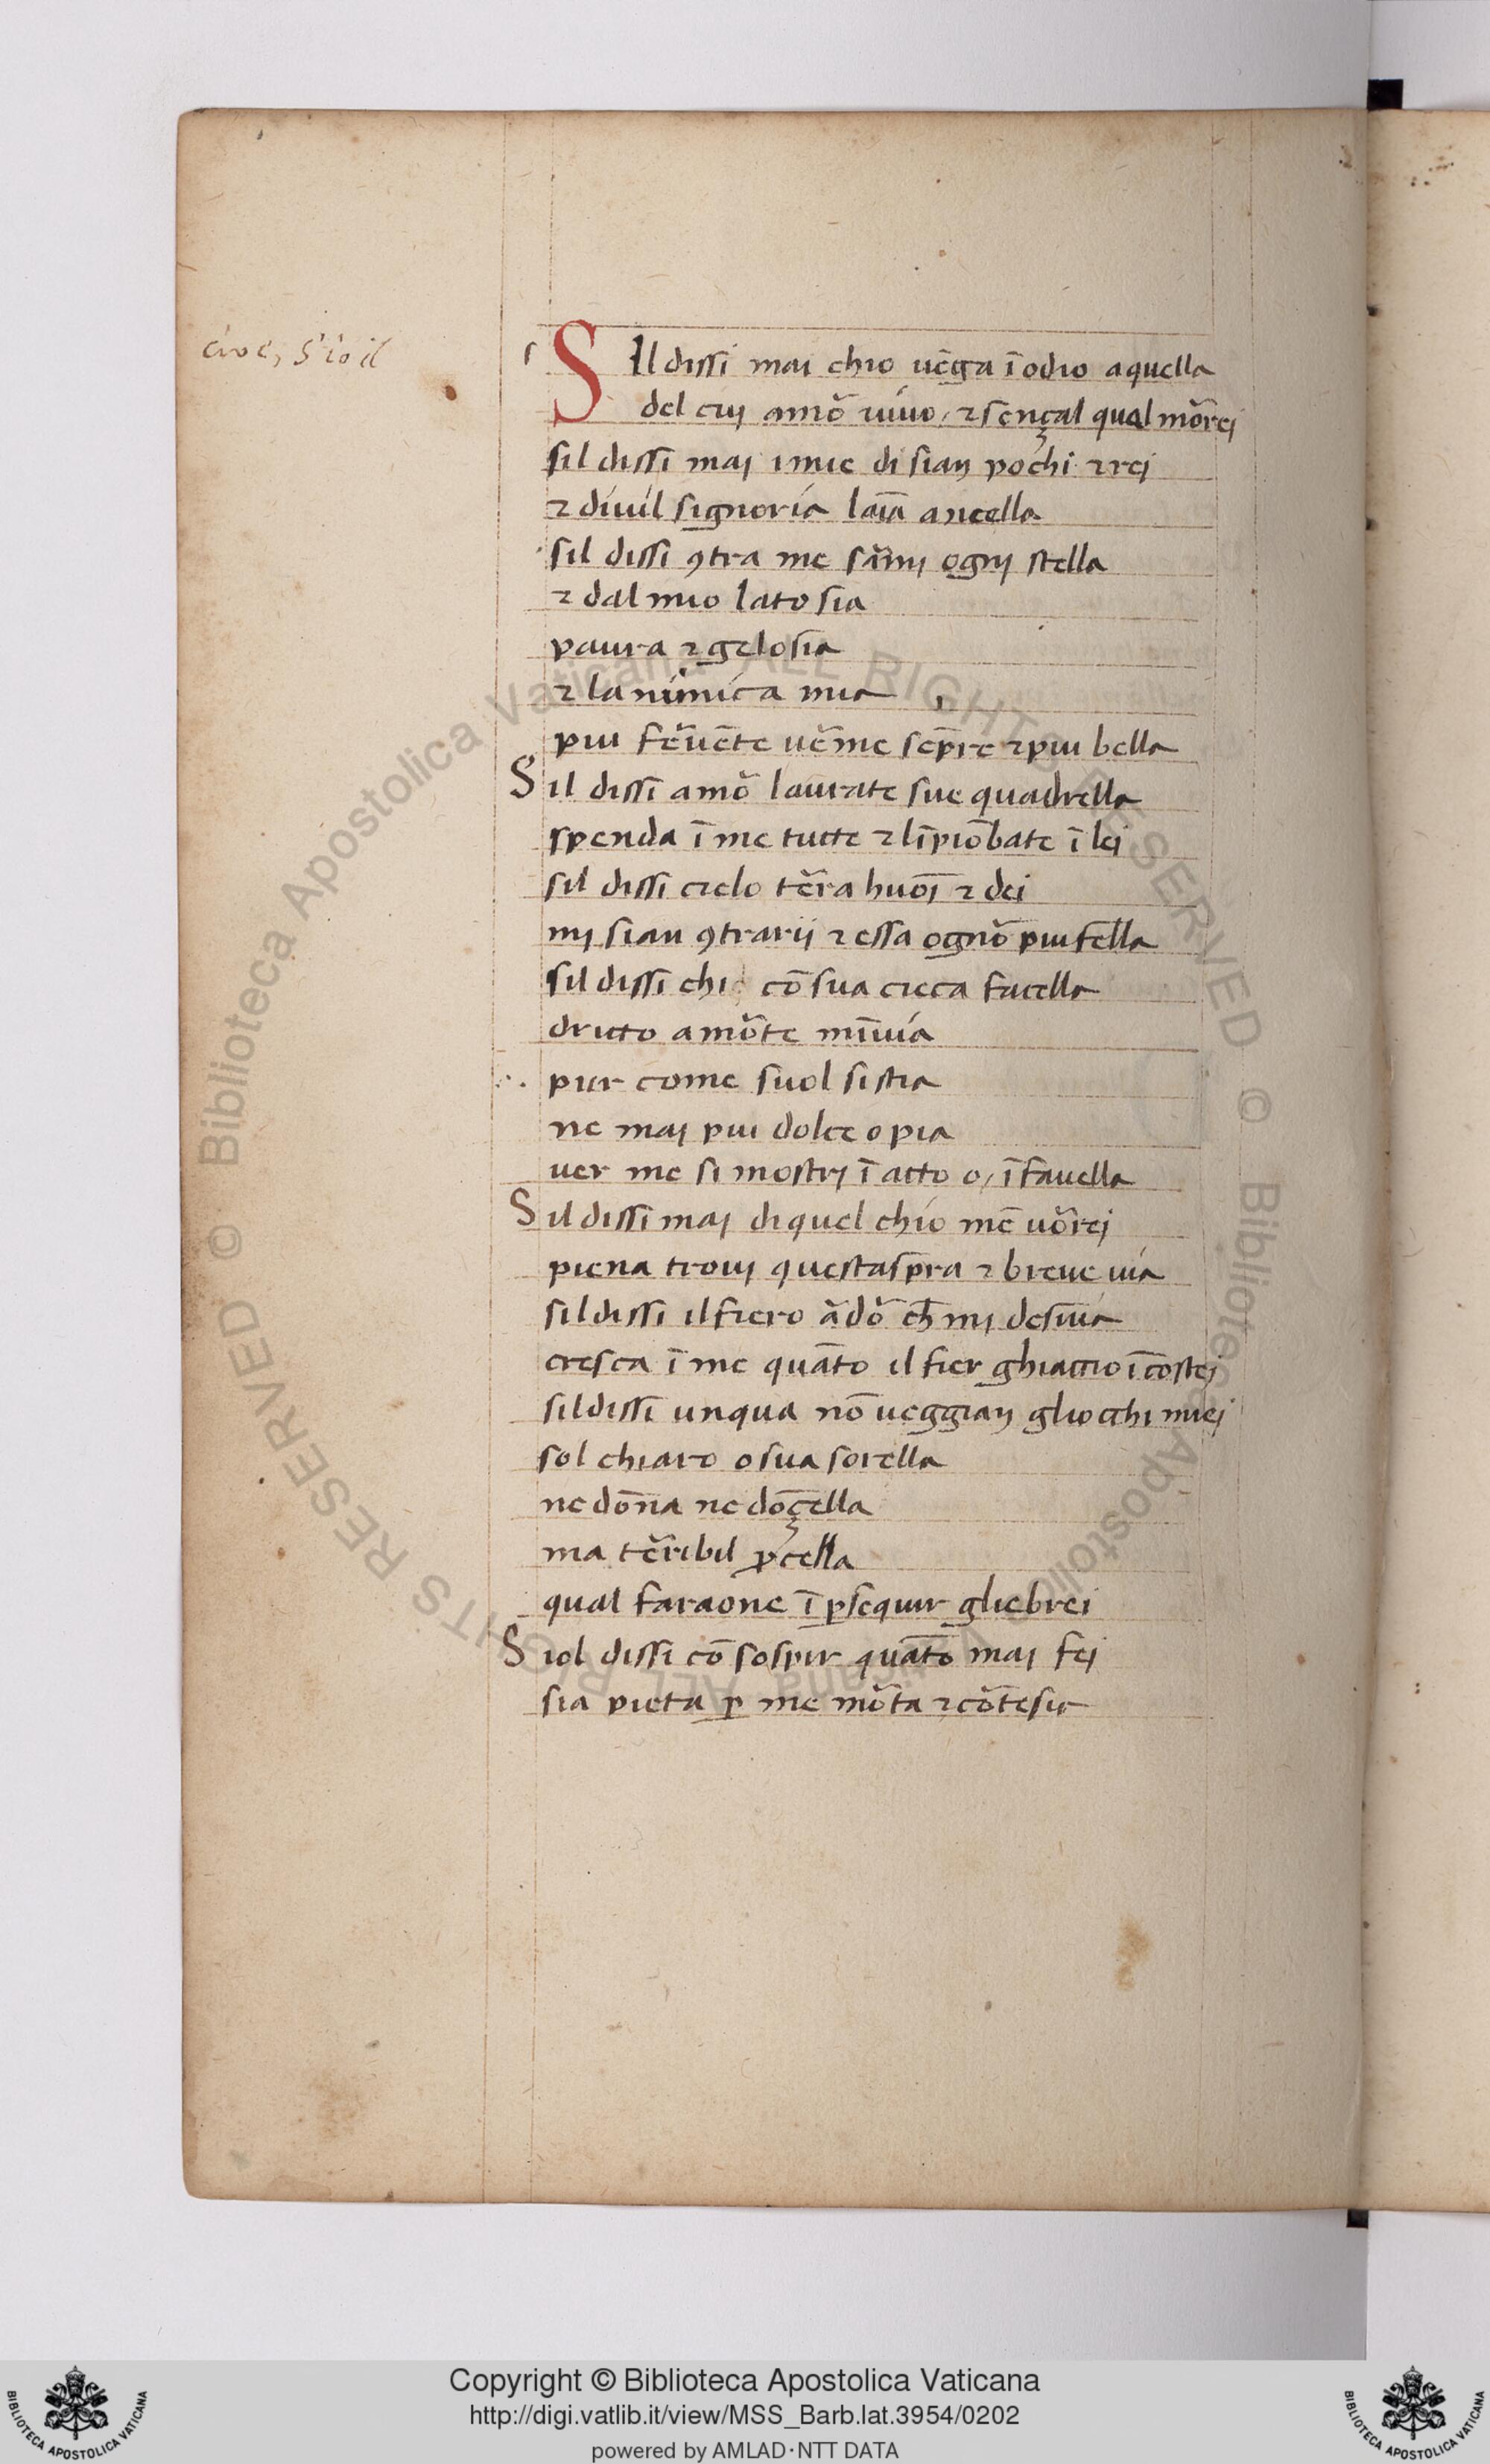 cioe, S'io il
SIl dissi mai chio uēga ī odio aquella
del cuj amō uiuo / ⁊ sençal qual mōrej
sil dissi maj imie di sian pochi ⁊ rej
⁊ diuil signoria laīa ancella
sil dissi ꝯtra me sām̄j ognj stella
⁊ dal mio lato sia
paura ⁊ gelosia
⁊ la nimica mia
piu fēuēte uēme sēpre ⁊ piu bella
Sil dissi amō laurate sue quadrella
spenda ī me tutte ⁊ līpiōbate ī lei
sil dissi cielo tēra huōj ⁊ dei
mj sian ꝯtrarij ⁊ essa ognō piu fella
sil dissi chi cō sua cieca facella
dritto amōte mīuia
pur come suol si stia
ne maj piu dolce o pia
uer me si mostrj ī atto o / ī fauella
Sil dissi maj di quel chio mē uōrej
piena trouj questasp̄ra ⁊ breue uia
sil dissi il fiero ādō ch̄ mj desuia
cresca ī me quāto il fier ghiaccio ī costej
sil dissi unqua nō ueggian gliocchi miej
sol chiaro o sua sorella
ne dōna ne dōçella
ma tēribil ꝓcella
qual faraone ī ꝑsequir gliebrei
Siol dissi cō sospir quāto maj fej
sia pieta ꝑ me mōta ⁊ cōtesia
Copyright © Biblioteca Apostolica Vaticana
http://digi.vatlib.it/view/MSS_Barb.lat.3954/0202
powered by AMLAD·NTT DATA
BIBLIOTECA APOSTOLICA VATICANA
BIBLIOTECA APOSTOLICA VATICANA
© Biblioteca Apostolica Vaticana ALL RIGHTS RESERVED
© Biblioteca Apostolica Vaticana ALL RIGHTS RESERVED